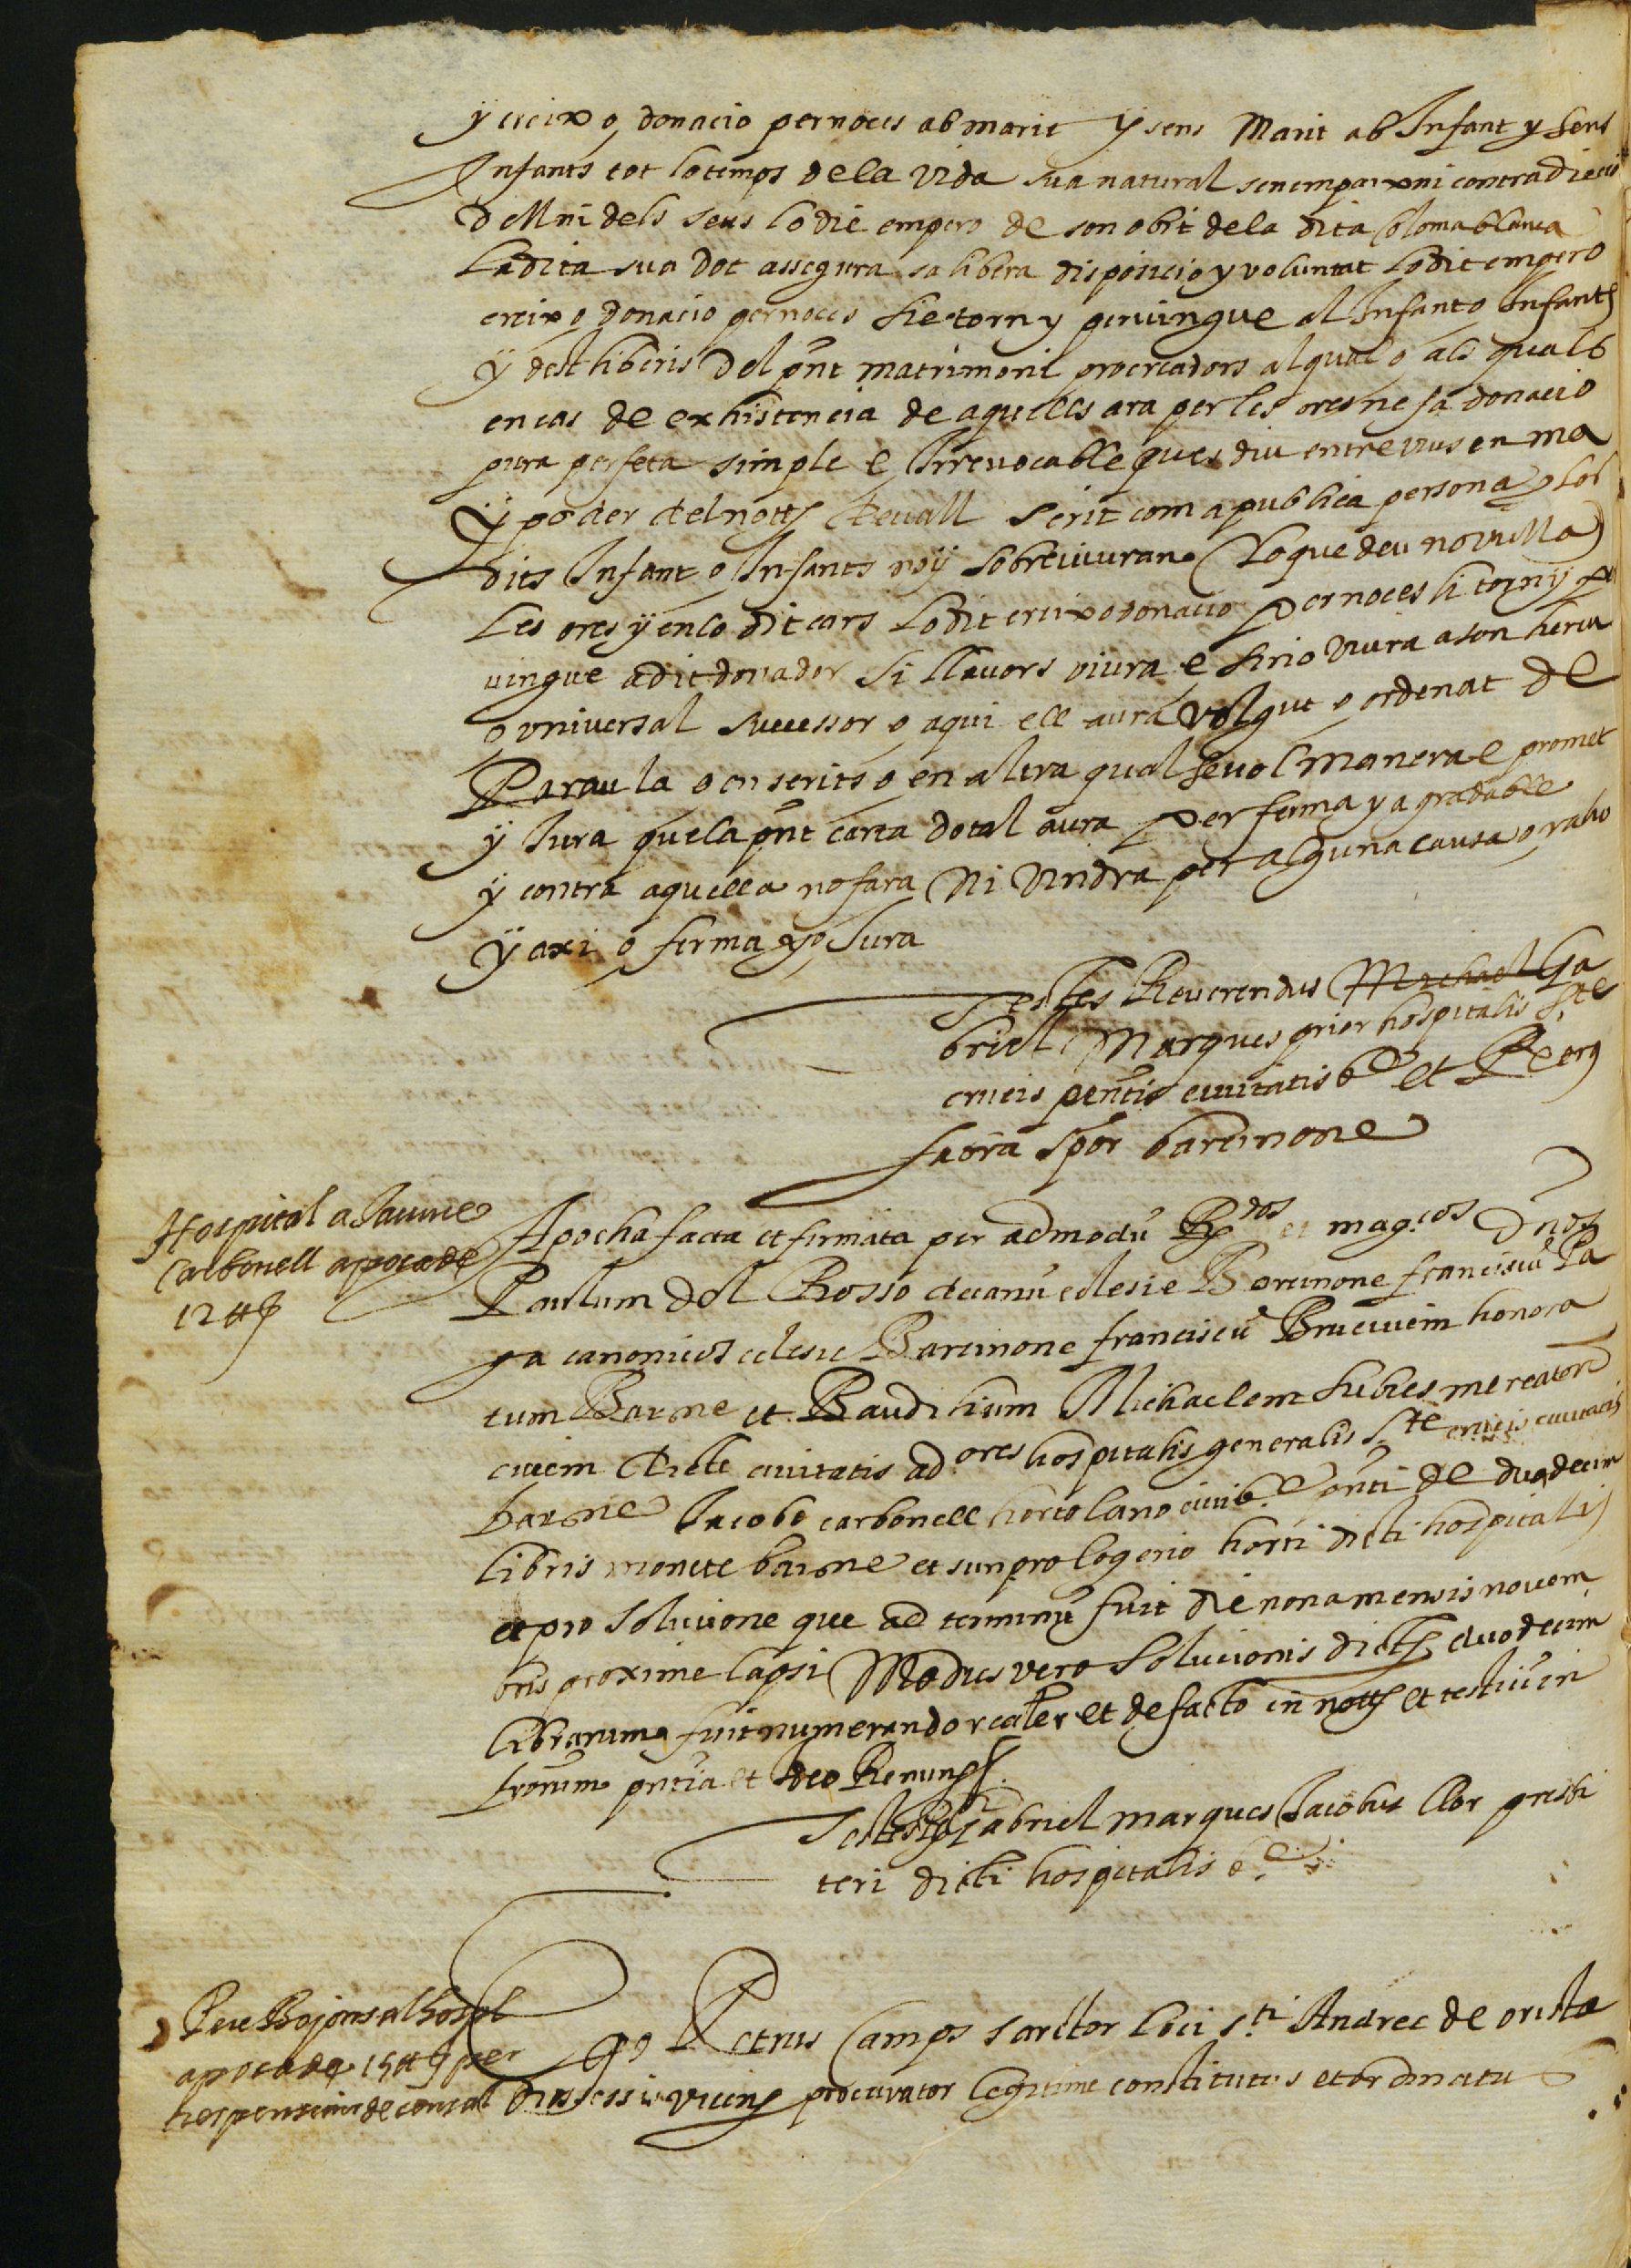 y creix o donacio per noces ab marit y sens Marit ab Infant y sens
Infants tot lo temps de la vida sua natural sens empaix ni contradiccio
dell ni dels seus lo die empero de son obit de la dita Coloma blanca
La dita sua dot assegura sa libera disposicio y voluntat Lo dit empero
creix o donacio per noces sie torn y pervingue al Infant o Infants
y dels liberis del pñt matrimoni procreadors al qual o als quals
en cas de exhistencia de aquells ara per les ores ne fa donacio
pura perfeta simple e Irrevocable ques diu entre vius en ma
y poder del nott devall scrit com a publica persona y los
dits Infant o Infants noy sobreviuran (Lo que deu no vulla)
Les ores y en lo dit cars Lo dit creix o donacio per noces li torn y per
vingue a dit donador si llavors viura e si no viura a son hereu
o universal successor o a qui ell aura volgut o ordenat de
Paraula o en scrits o en altra qualsevol manera e promet
y Jura que la pñt carta dotal aura per ferma y agradable
y contra aquella no fara Ni vindra per alguna causa o raho
y axi o ferma y o Jura
Testes Reverendus Michael Ga
briel Marques prior hospitalis Ste
crucis pñtis civitatis et
barcinone
Hospital a Jaume
Carbonell apoca de
12 ₶
Apocha facta et firmata per admodũ Rdos et mag.cos dños
Paulum del Rosso decanũ eclesie Barcinone franciscũ Pa
ga canonicos eclesie Barcinone franciscũ civem honora
tum Barne et Baudilium Michaelem Subies mercatorẽ
civem dicte civitatis ad ores hospitalis generalis Ste crucis civitatis
barne Jacobo carbonell hortolano de duodecim
libris monete barne et sun pro logerio horti dicti hospitalis
et pro solucione que ad terminũ fuit die nona mensis novem
bris proxime lapsi Modus vero solucionis dictarum duodecim
librarum fuit numerando realiter et de facto in nott et testium in
frorum pñtia et Ideo Renun
Testes Rdi Gabriel marques Jacobus Clor presbi
teri dicti hospitalis
Pere Bojons al hospl
apoca de 15 ₶ per
les pensions de censal
Ego Petrus Camps sarctor loci sti Andree de orista
diocessis vicen procurator legitime constitutus et ordinatus